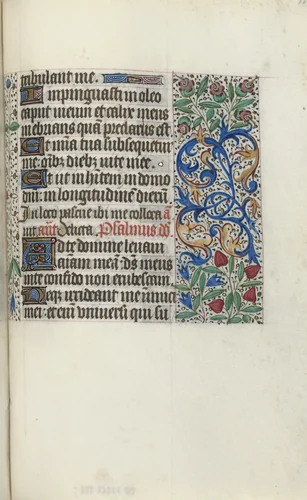 tribulant me.
Inpinguasti in oleo
caput meum et calix meus
inebrians quā preclarus est.
Et mīa tua subsequetur
me: oībȝ diebȝ uite mee.
Et ut inhītem in domo
dn̄i: in longitudinē dierū̄
In loco pascue ibi me collocauit
ant̄ Psalmus dd̄
Ad te domine leuaui
aīam meā: ds̄ meus
in te confido non erubescam.
Neqȝ irrideant me inimici
mei: etenī vniuersi qui su